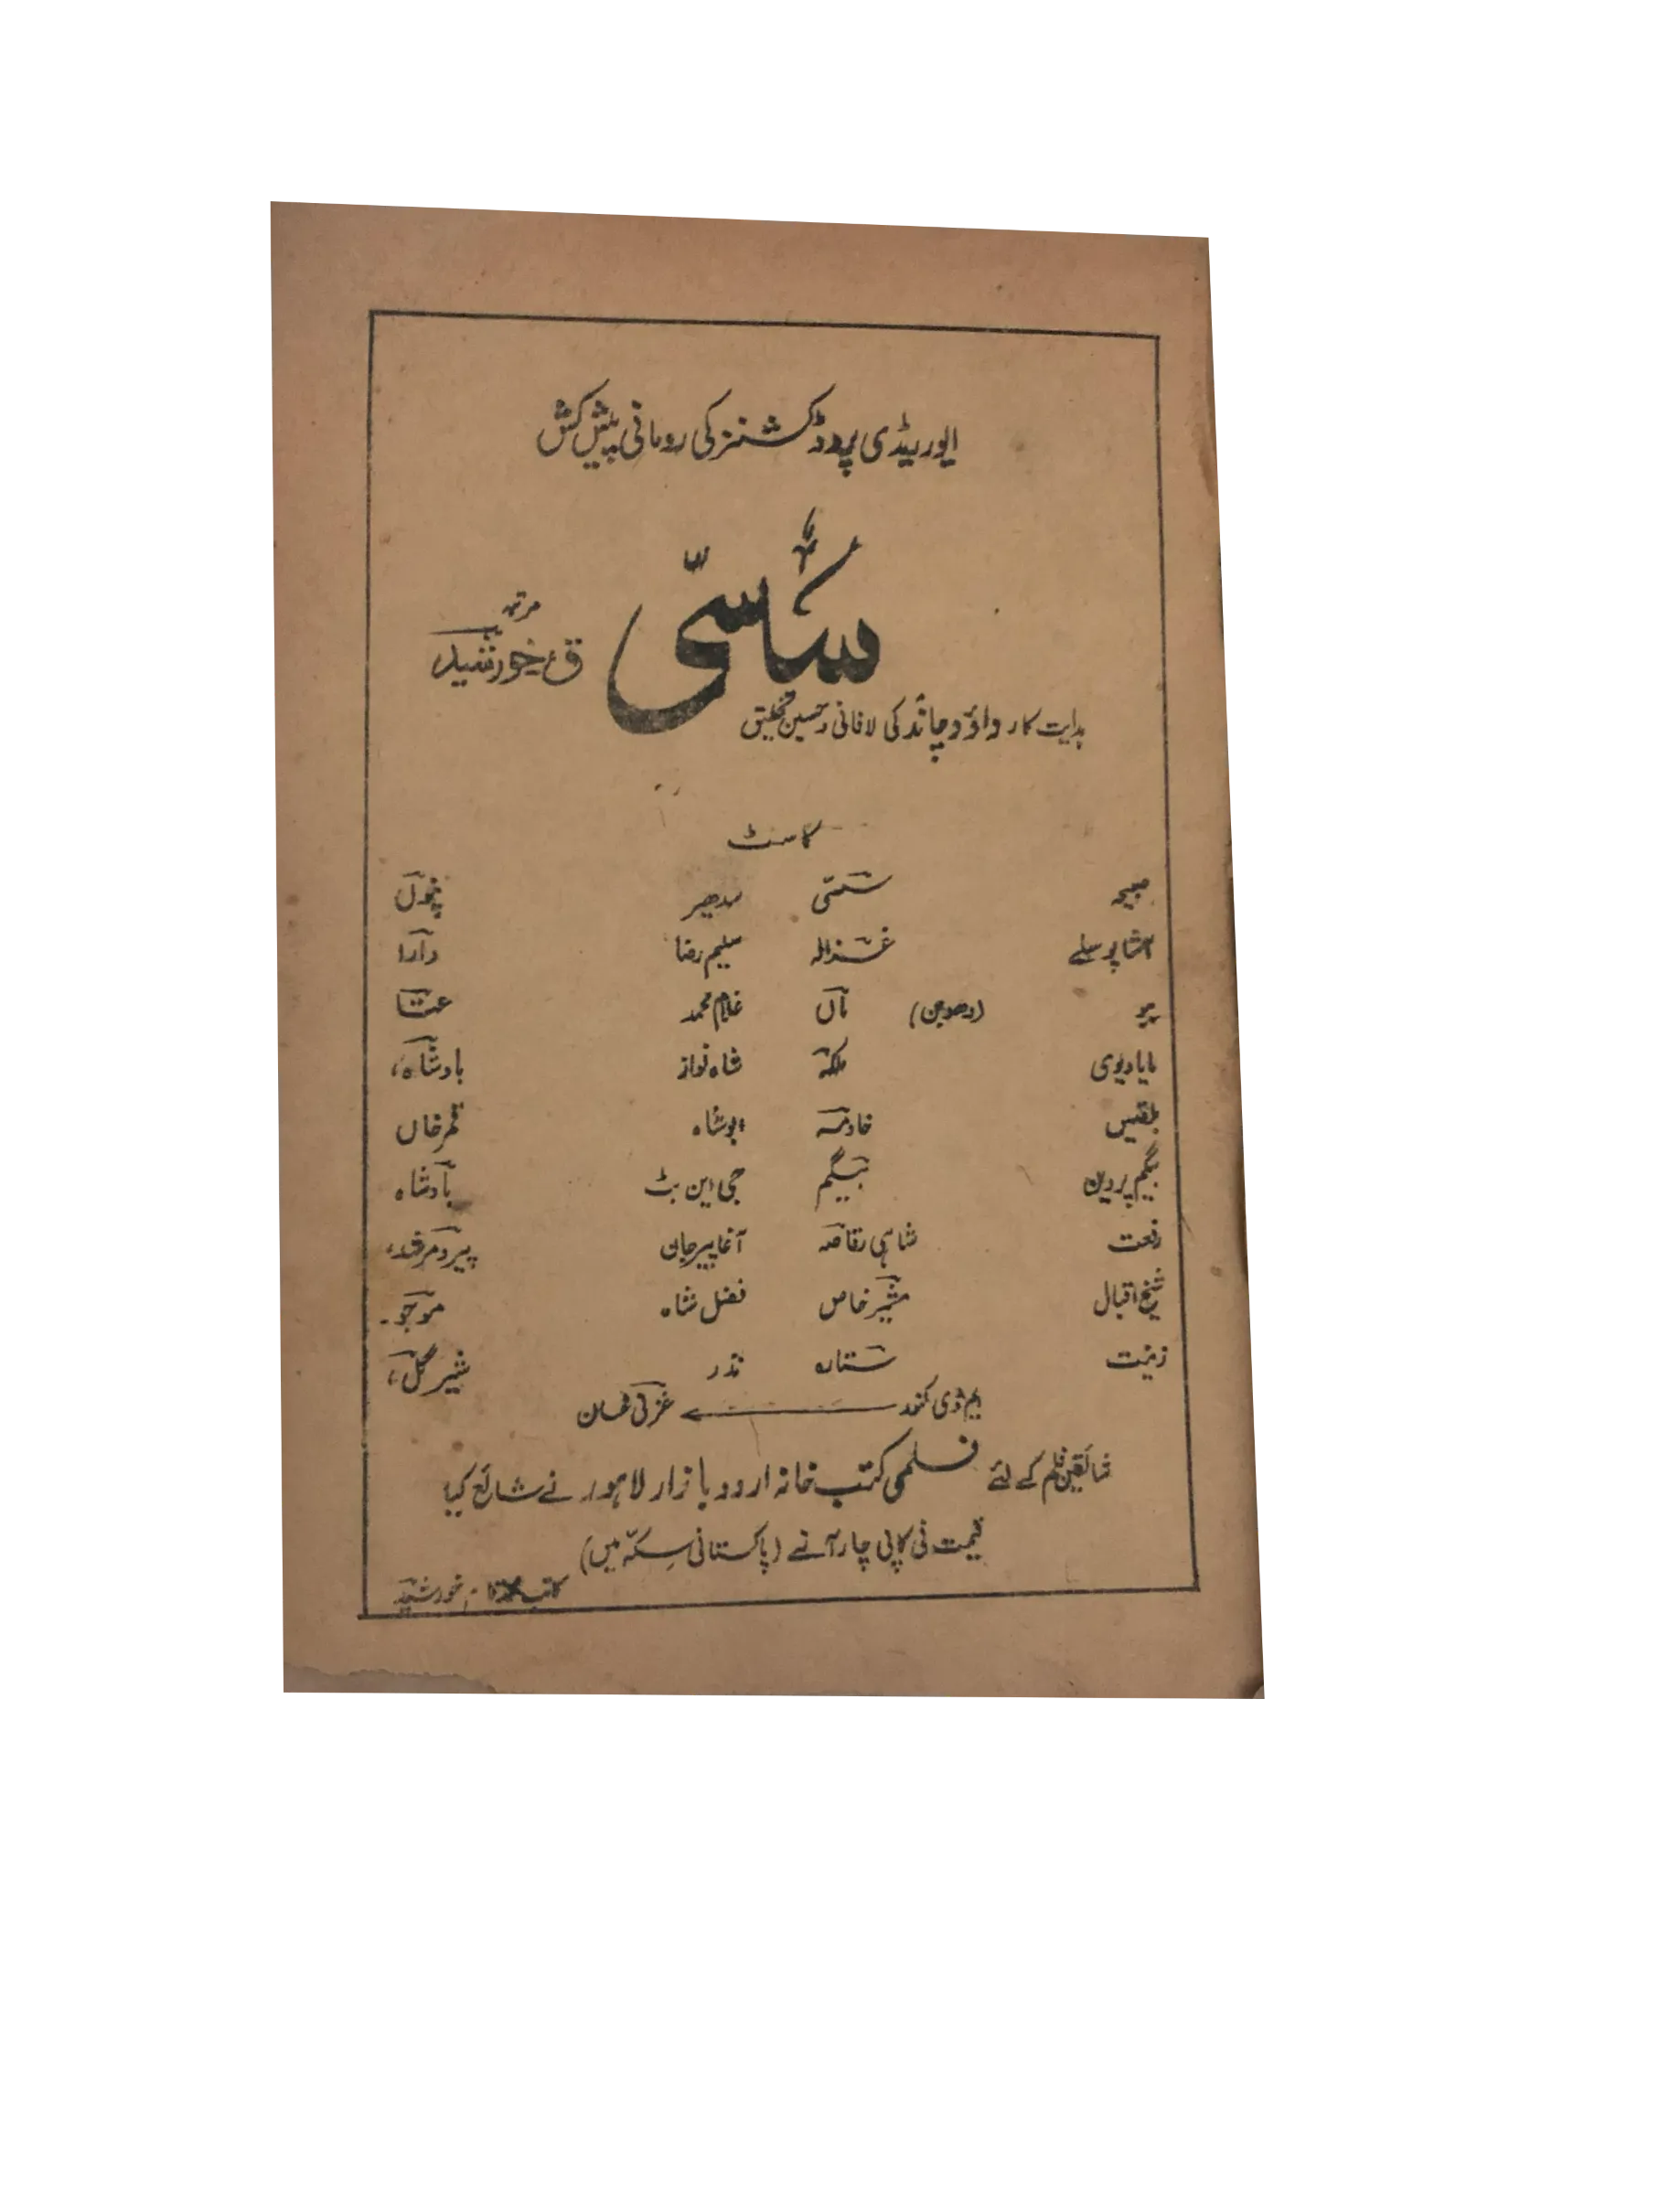 ایوریڈی پروڈکشنز کی رومانی پیش کش
سسّی
مرتبہ
ق خورشید
ہدایت کار داؤد چاند کی لافانی و حسین تخلیق
کاسٹ
صبیحہ سسّی سدھیر پنوں
آشا پوسلے غزالہ سلیم رضا دارا
ببو ماں (دھوبن) غلام محمد عتا
مایا دیوی ملکہ شاہ نواز بادشاہ،
بلقیس خادمہ ابوشاہ قمر خاں
بیگم پروین بیگم جی این بٹ بادشاہ
رفعت شاہی رقاصہ آغا پیر جان پیر و مرشد،
شیخ اقبال مشیر خاص فضل شاہ موجو۔
زینت ستارہ نذر شیر گل،
ایم ڈی کنور غزنی خان
شائقین فلم کے لئے فلمی کتب خانہ اردو بازار لاہور نے شائع کیا
قیمت فی کاپی چار آنے (پاکستانی سکہ میں)
کاتب خورشید